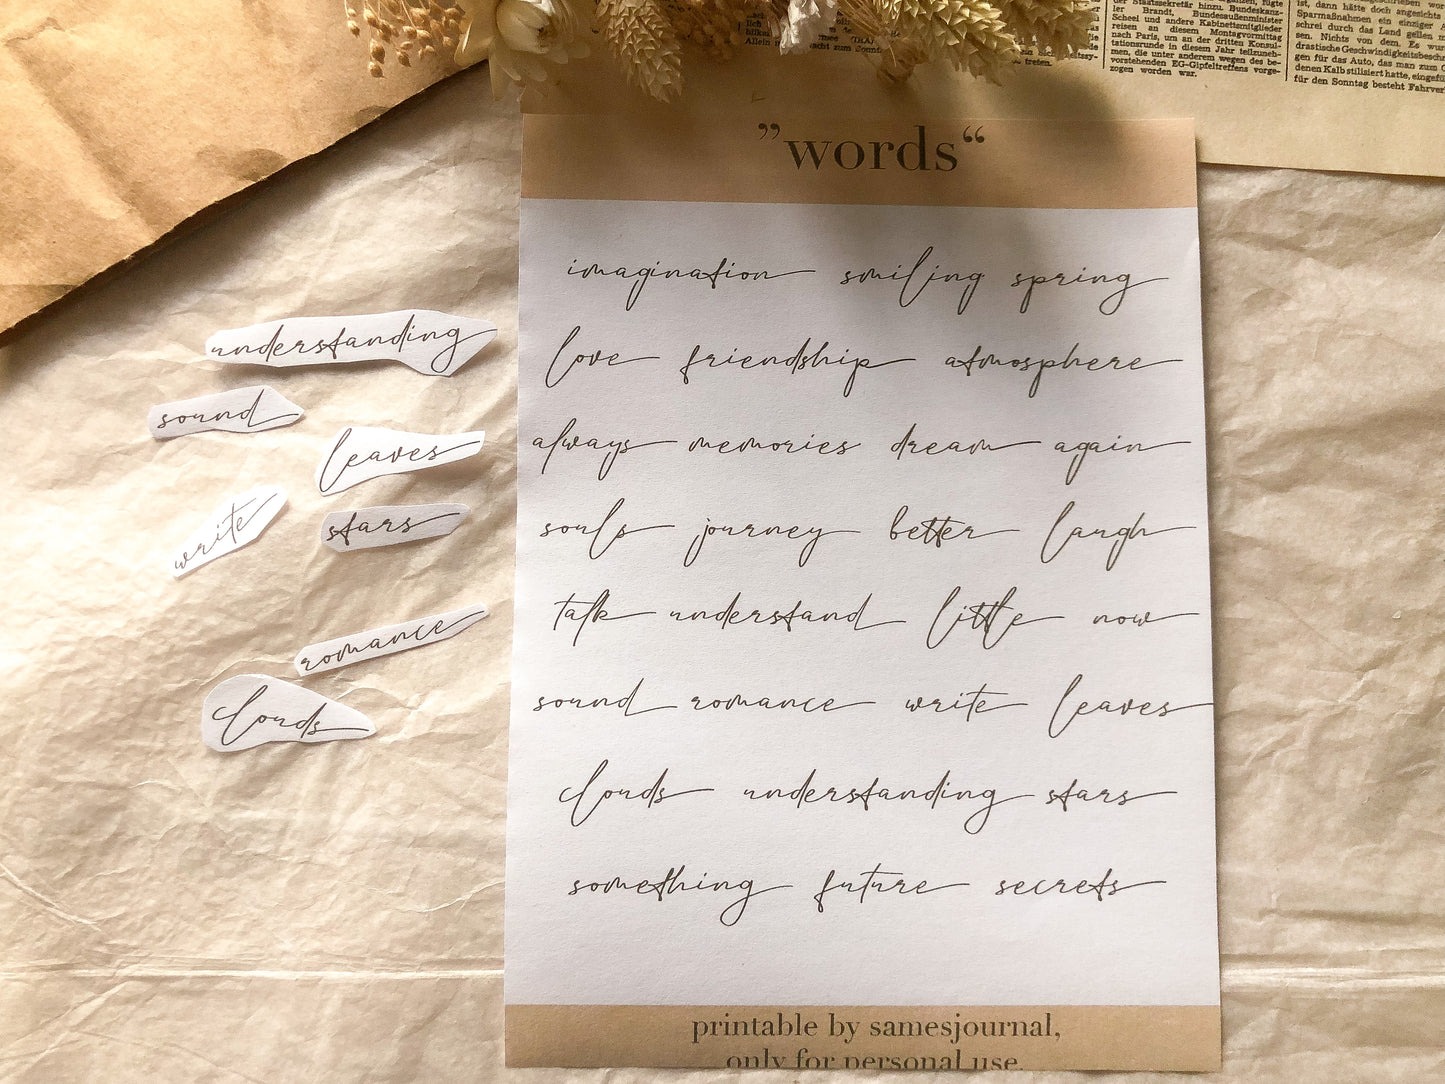 der Staatssekretär hinzu. Bundeskanz-
ler Brandt, Bundesaußenminister
Scheel und andere Kabinettsmitglieder
reisen an diesem Montagvormittag
nach Paris, um an der dritten Konsul-
tationsrunde in diesem Jahr teilzuneh-
men, die unter anderem wegen des be-
vorstehenden EG-Gipfeltreffens vorge-
zogen worden war.
ist, dann hätte doch angesichts
Sparmaßnahmen ein einziger
schrei durch das Land gellen
sen. Nichts von dem. Es wur
drastische Geschwindigkeitsbesch
gen für das Auto, das man zum
denen Kalb stilisiert hatte, eingefü
für den Sonntag besteht Fahrver
”words“
imagination smiling spring
love friendship atmosphere
always memories dream again
souls journey better laugh
talk understand little now
sound romance write leaves
clouds understanding stars
something future secrets
printable by samesjournal,
only for personal use.
understanding
sound
leaves
write
stars
romance
clouds